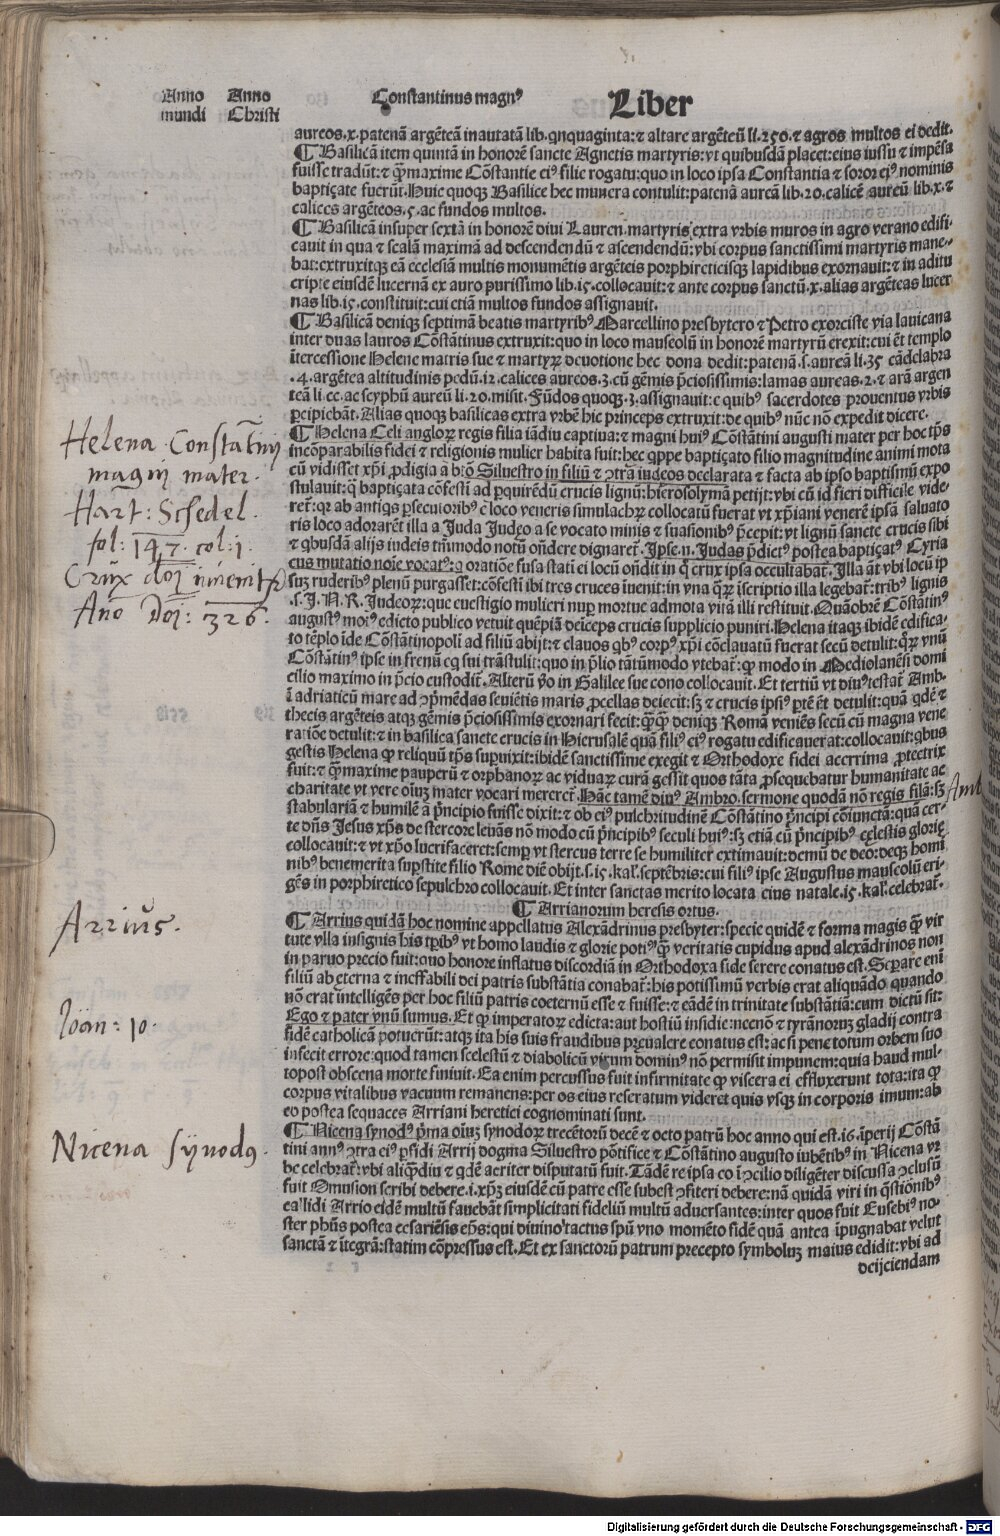 Anno Anno Constantinus magnꝰ Liber
mundi Christi
aureos.x.patenā argēteā inautatā lib.qnquaginta:⁊ altare argēteū li.250.⁊ agros multos ei dedit.
¶ Basilicā item quintā in honorē sancte Agnetis martyris:vt quibusdā placet:eius iussu ⁊ impēsa
fuisse tradūt:⁊ maxime Cōstantie eiꝰ filie rogatu:quo in loco ipsa Constantia ⁊ soror eiꝰ nominis
baptiçate fuerūt.Huic quoqꝫ Basilice hec munera contulit:patenā aureā lib.20.calicē aureū lib.x.⁊
calices argēteos.5.ac fundos multos.
¶ Basilicā insuper sextā in honorē divi Lauren.martyris extra vrbis muros in agro verano edifi-
cauit in qua ⁊ scalā maximā ad descendendū ⁊ ascendendū:vbi corpus sanctissimi martyris mane-
bat:extruxitqꝫ eā ecclesiā multis monumētis argēteis porphireticisqꝫ lapidibus exornauit:⁊ in aditu
cripte eiusdē lucernā ex auro purissimo lib.15.collocauit:⁊ ante corpus sanctū.x.alias argēteas lucer
nas lib.15.constituit:cui etiā multos fundos assignauit.
¶ Basilicā deniqꝫ septimā beatis martyribꝰ Marcellino presbytero ⁊ Petro exorciste via lauicana
inter duas lauros Cōstātinus extruxit:quo in loco mauseolū in honorē martyrū erexit:cui ēt templo
ītercessione Helene matris sue ⁊ martyrꝝ deuotione hec dona dedit:patenā.s.aureā li.35 cādelabra
.4.argētea altitudinis pedū.12.calices aureos.3.cū gēmis p̄ciosissimis:lamas aureas.2.⁊ arā argen
teā li.cc.ac scyphū aureū li.20.misit.Fūdos quoqꝫ.3.assignauit:e quibꝰ sacerdotes prouentus vrbis
p̱cipiebāt.Alias quoqꝫ basilicas extra vrbē hic princeps extruxit:de quibꝰ nūc nō expedit dicere.
¶ Helena Celi angloꝝ regis filia iādiu captiua:⁊ magni huiꝰ Cōstātini augusti mater per hoc tp̄s
incōparabilis fidei ⁊ religionis mulier habita fuit:hec qppe baptiçato filio magnitudine animi mota
cū vidisset xp̄i ꝓdigia a btō Siluestro in filiū ⁊ ꝯtra iudeos declarata ⁊ facta ab ipso baptismū expo
stulauit:q̄ baptiçata cōfestī ad ꝑquirēdū crucis lignū:hierosolymā petijt:vbi cū id fieri difficile vide-
ret̄:qꝛ ab antiqs ꝑsecutoribꝰ ī loco veneris simulachꝝ collocatū fuerat vt xp̄iani venerē ipsā saluato
ris loco adorarēt illa a Juda Judeo a se vocato minis ⁊ suasionibꝰ p̄cepit:vt lignū sancte crucis sibi
⁊ qbusdā alijs iudeis tm̄modo notū on̄dere dignaret̄.Ipse.n.Judas p̄dictꝰ postea baptiçatꝰ Cyria
cus mutatio noīe vocatꝰ:q oratiōe fusa stati ei locū on̄dit in q̄ crux ipsa occultabat̄.Illa āt vbi locū ip
suꝫ ruderibꝰ plenū purgasset:cōfestī ibi tres cruces īuenit:in vna q̄ꝝ īscriptio illa legebat̄:tribꝰ lignis
.s.J.N.R.Iudeoꝝ:que euestigio mulieri nup̱ mortue admota vitā illi restituit.Quāobrē Cōstātinꝰ
augustꝰ motꝰ edicto publico vetuit quēpiā deīceps crucis supplicio puniri.Helena itaqꝫ ibidē edifica-
to tēplo īde Cōstātinopoli ad filiū abijt:⁊ clauos qbꝰ corpꝰ xp̄i cōclauatū fuerat secū detulit:q̄ꝝ vnū
Cōstātinꝰ ipse in frenū eq sui trāstulit:quo in p̄lio tātūmodo vtebat̄:qꝫ modo in Mediolanēsi domi
cilio maximo in p̄cio custodit̄.Alterū v̄o in Galilee sue cono collocauit.Et tertiū vt diuꝰ testat̄ Amb.
ī adriaticū mare ad ꝯp̄mēdas seuiētis maris ꝓcellas deiecit:sꝫ ⁊ crucis ipsiꝰ ꝑtē ēt detulit:quā qdē ⁊
thecis argēteis atqꝫ gēmis p̄ciosissimis exornari fecit:q̄q̄ deniqꝫ Romā veniēs secū cū magna vene
ratiōe detulit:⁊ in basilica sancte crucis in Hierusalē quā filiꝰ eiꝰ rogatu edificauerat:collocauit:qbus
gestis Helena qꝫ reliquū tp̄s suꝑuixit:ibidē sanctissime exegit ⁊ Orthodoxe fidei acerrima ꝓtectrix
fuit:⁊ q̄maxime pauperū ⁊ orphanoꝝ ac viduaꝝ curā gessit quos tāta ꝓsequebatur humanitate ac
charitate vt vere oīuꝫ mater vocari mereret̄.Hāc tamē diuꝰ Ambro.sermone quodā nō regis filiā:sꝫ
stabulariā ⁊ humilē a p̄ncipio fuisse dixit:⁊ ob eiꝰ pulchritudinē Cōstātino p̄ncipi cōiunctā:quā cer-
te dn̄s Jesus xp̄s de stercore leuās nō modo cū p̄ncipibꝰ seculi huiꝰ:sꝫ etiā cū p̄ncipibꝰ cęlestis glorię
collocauit:⁊ vt xp̄o lucrifaceret:semp̱ vt stercus terre se humiliter extimauit:demū de deo:deqꝫ homi
nibꝰ benemerita suꝑstite filio Rome diē obijt.s.15.kal.septēbris:cui filiꝰ ipse Augustus mauseolū eri-
gēs in porphiretico sepulchro collocauit.Et inter sanctas merito locata eius natale.15.kal.celebrat̄.
¶ Arrianorum heresis ortus.
¶ Arrius quidā hoc nomine appellatus Alexādrinus presbyter:specie quidē ⁊ forma magis q̄ vir
tute vlla insignis his tp̱ibꝰ vt homo laudis ⁊ glorie potiꝰ q̄ veritatis cupidus apud alexādrinos non
in paruo precio fuit:quo honore inflatus discordiā in Orthodoxa fide serere conatus est.Seꝑare enī
filiū ab ęterna ⁊ ineffabili dei patris substātia conabat̄:his potissimū verbis erat aliquādo quando
nō erat:intelligēs per hoc filiū patris coeternū esse ⁊ fuisse:⁊ eādē in trinitate substātiā:cum dictū sit:
Ego ⁊ pater vnū sumus.Et qꝫ imperatoꝝ edicta:aut hostiū insidie:necnō ⁊ tyrānorum gladij contra
fidē catholicā potuerūt:atqꝫ ita his suis fraudibus pręualere conatus est:ac si pene totum orbem suo
infecit errore:quod tamen scelestū ⁊ diabolicū virum dominꝰ nō permisit impunem:quia haud mul-
topost obscena morte finiuit.Ea enim percussus fuit infirmitate qꝫ viscera ei effluxerunt tota:ita qꝫ
corpus vitalibus vacuum remanens:per os eius reseratum videret quis vsqꝫ in corporis imum:ab
eo postea sequaces Arriani heretici cognominati sunt.
¶ Nicena synodꝰ p̄ma oīuꝫ synodoꝝ trecētorū decē ⁊ octo patrū hoc anno qui est.16.īperij Cōstā
tini annꝰ ꝯtra eiꝰ ꝑfidi Arrij dogma Siluestro pōtifice ⁊ Cōstātino augusto iubētibꝰ in Nicena vr
be celebrat̄:vbi aliq̄diu ⁊ qdē acriter disputatū fuit.Tādē re ipsa co īꝯcilio diligēter discussa ꝯclusū
fuit Omusion scribi debere.i.xp̄ꝫ eiusdē cū patre esse subest ꝯfiteri debere:nā quidā viri in q̄stiōnibꝰ
callidi Arrio eidē multū fauebāt simplicitati fideliū multū aduersantes:inter quos fuit Eusebiꝰ no-
ster phūs postea cesariēsis ep̄s:qui diuino tactus spū vno momēto fidē quā antea īpugnabat velut
sanctā ⁊ ītegrā:statim cōpressus est.Et ex sanctorū patrum precepto symboluꝫ maius edidit:vbi ad
deijciendam
Helena Constātinj
magnj mater.
Hart: Schedel.
fol: 147. col: 1.
Crux dnj inuenitꝛ
Año Dnj: 326.
Amb
Arriūs.
Ioan: 10.
Nicena Synodꝰ.
Digitalisierung gefördert durch die Deutsche Forschungsgemeinschaft - DFG